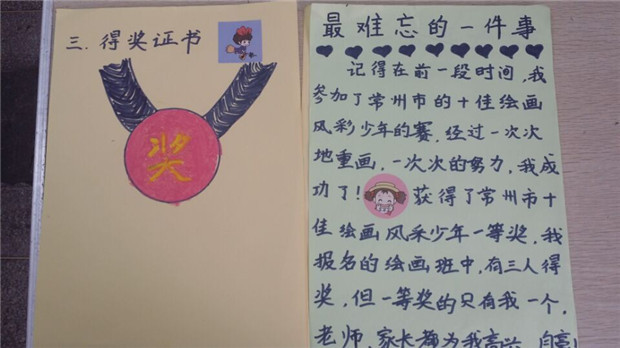 三.得奖证书
奖
最难忘的一件事
记得在前一段时间,我
参加了常州市的十佳绘画
风彩少年的赛,经过一次次
地重画,一次次的努力,我成
功了!获得了常州市十
佳绘画风采少年一等奖,我
报名的绘画班中,有三人得
奖,但一等奖的只有我一个,
老师,家长都为我高兴,自豪